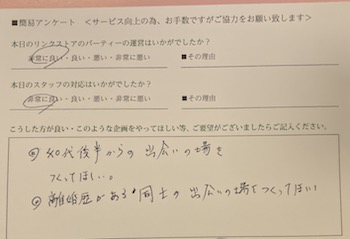 ■簡易アンケート <サービス向上の為、お手数ですがご協力をお願い致します>
本日のリンクストアのパーティーの運営はいかがでしたか？
非常に良い・良い・悪い・非常に悪い ■その理由
本日のスタッフの対応はいかがでしたか？
非常に良い・良い・悪い・非常に悪い ■その理由
こうした方が良い・このような企画をやってほしい等、ご要望がございましたらご記入ください。
40代後半からの出会いの場を
つくってほしい。
離婚歴がある同士の出会いの場をつくってほしい